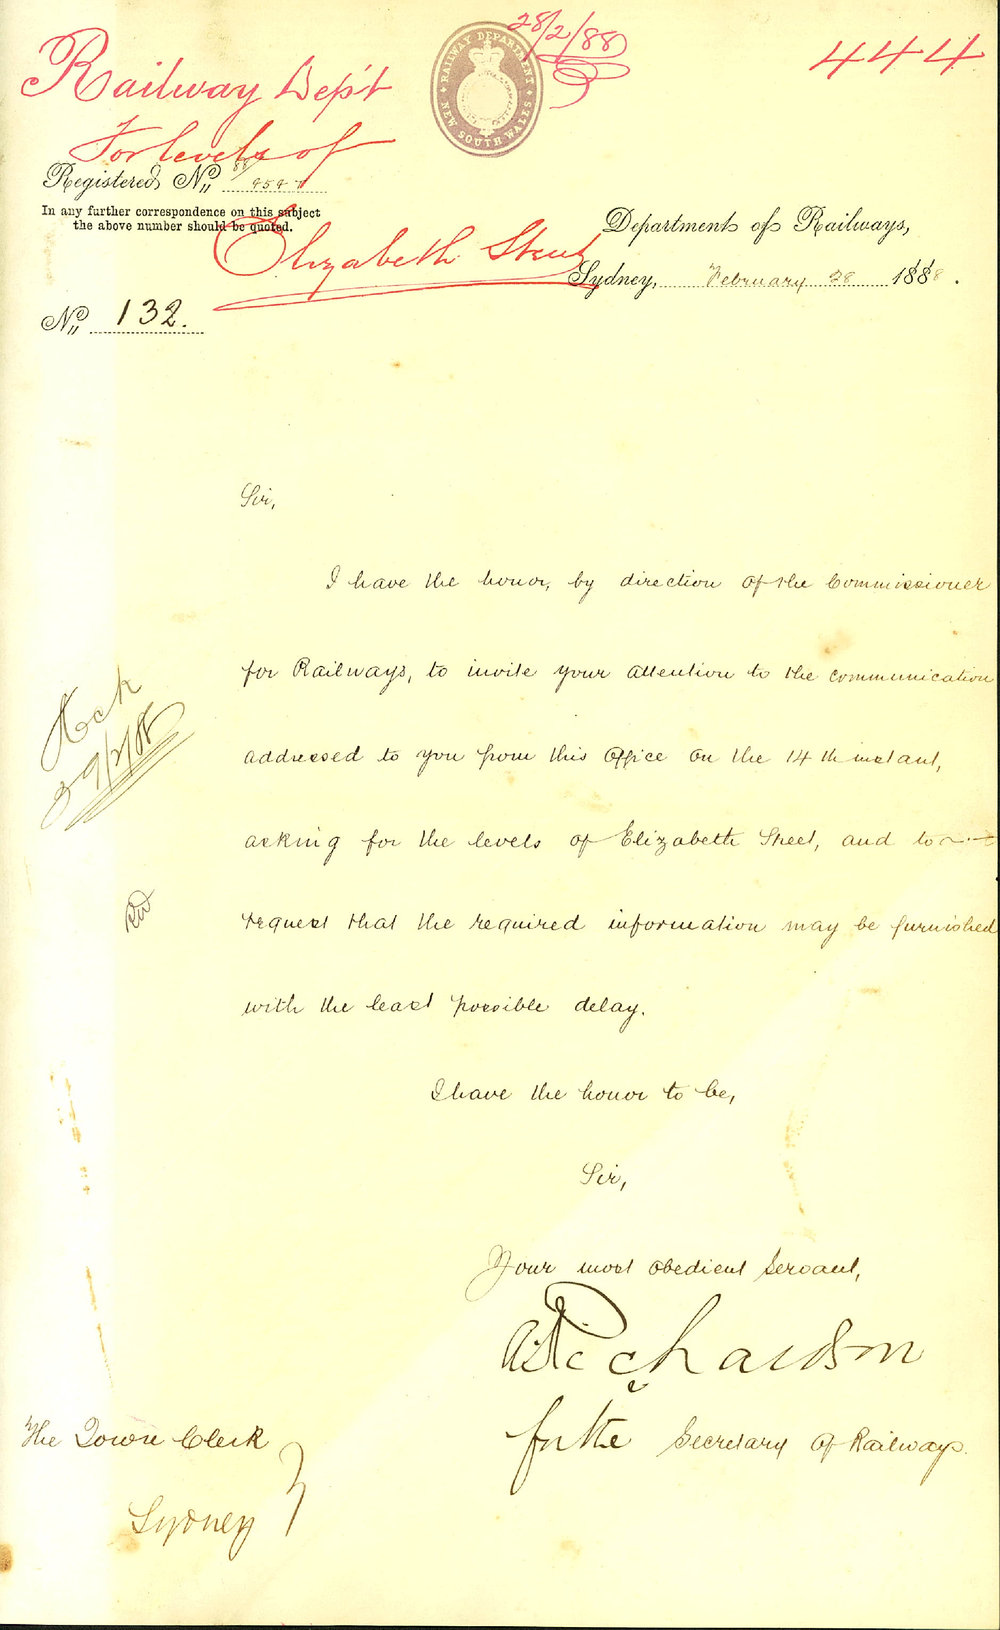 28/2/88
444
Railway Dep't
For levels of
Elizabeth Street
RAILWAY DEPARTMENT
NEW SOUTH WALES
Registered No. 88/
In any further correspondence on this subject
the above number should be quoted.
No. 132.
Department of Railways,
Sydney, February 28 1888.
Sir,
I have the honor, by direction of the Commissioner
for Railways, to invite your attention to the communication
addressed to you from this Office on the 14th instant,
asking for the levels of Elizabeth Street, and to
request that the required information may be furnished
with the least possible delay.
Ack
29/2/88
I have the honor to be,
Sir,
Your most obedient Servant,
Richardson
for the Secretary of Railways.
The Town Clerk
Sydney